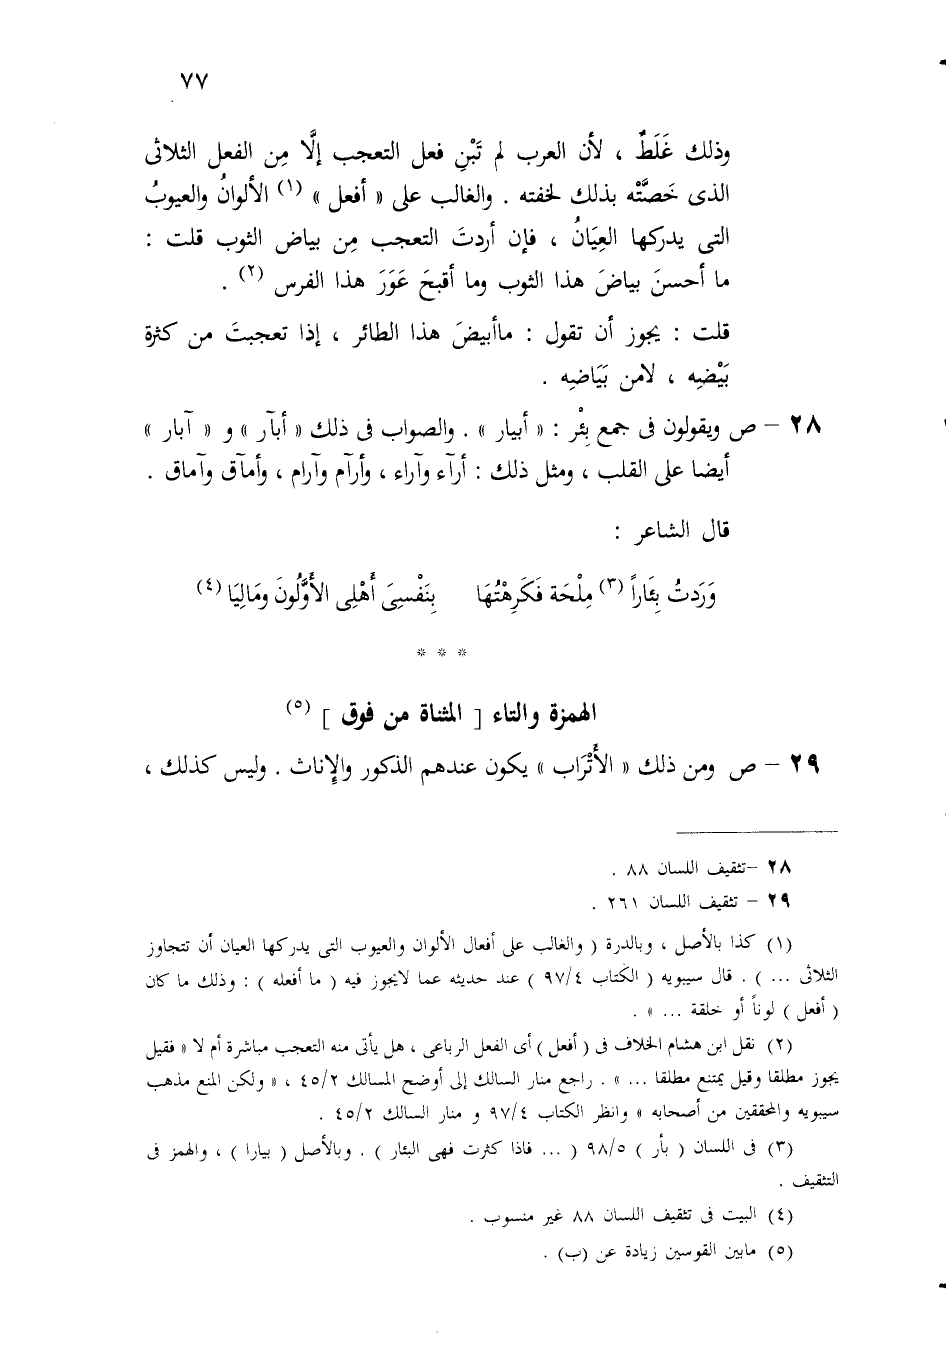 ٧٧
وذلك غَلَطٌ ، لأن العرب لم تَبْنِ فعل التعجب إلَّا مِن الفعل الثلاثى
الذى خَصَّتْه بذلك لخفته . والغالب على « أفعل » (١) الألوانُ والعيوبُ
التى يدركها العِيَانُ ، فإن أردتَ التعجب مِن بياض الثوب قلت :
ما أحسنَ بياضَ هذا الثوب وما أقبحَ عَوَرَ هذا الفرس (٢) .
قلت : يجوز أن تقول : ماأبيضَ هذا الطائر ، إذا تعجبتَ من كثرة
بَيْضِه ، لامن بَيَاضِه .
٢٨ – ص ويقولون فى جمع بِئْر : « أبيار » . والصواب فى ذلك « أبآر » و « آبار »
أيضا على القلب ، ومثل ذلك : أرآء وآراء ، وأرآم وآرام ، وأمآق وآماق .
قال الشاعر :
وَرَدتُ بِئَاراً (٣) مِلْحَة فَكَرِهْتُهَا بِنَفْسِىَ أَهْلِى الأَوَّلُونَ ومَالِيَا (٤)
* * *
الهمزة والتاء [ المثناة من فوق ] (٥)
٢٩ – ص ومن ذلك « الأَتْرَاب » يكون عندهم الذكور والإناث . وليس كذلك ،
٢٨ –تثقيف اللسان ٨٨ .
٢٩ – تثقيف اللسان ٢٦١ .
(١) كذا بالأصل ، وبالدرة ( والغالب على أفعال الألوان والعيوب التى يدركها العيان أن تتجاوز
الثلاثى ... ) . قال سيبويه ( الكتاب ٩٧/٤ ) عند حديثه عما لايجوز فيه ( ما أفعله ) : وذلك ما كان
( أفعل ) لوناً أو خلقة ... » .
(٢) نقل ابن هشام الخلاف فى ( أفعل ) أى الفعل الرباعى ، هل يأتى منه التعجب مباشرة أم لا « فقيل
يجوز مطلقا وقيل يمتنع مطلقا ... » . راجع منار السالك إلى أوضح المسالك ٤٥/٢ ، « ولكن المنع مذهب
سيبويه والمحققين من أصحابه » وانظر الكتاب ٩٧/٤ و منار السالك ٤٥/٢ .
(٣) فى اللسان ( بأر ) ٩٨/٥ ( ... فاذا كثرت فهى البئار ) . وبالأصل ( بيارا ) ، والهمز فى
التثقيف .
(٤) البيت فى تثقيف اللسان ٨٨ غير منسوب .
(٥) مابين القوسين زيادة عن (ب) .